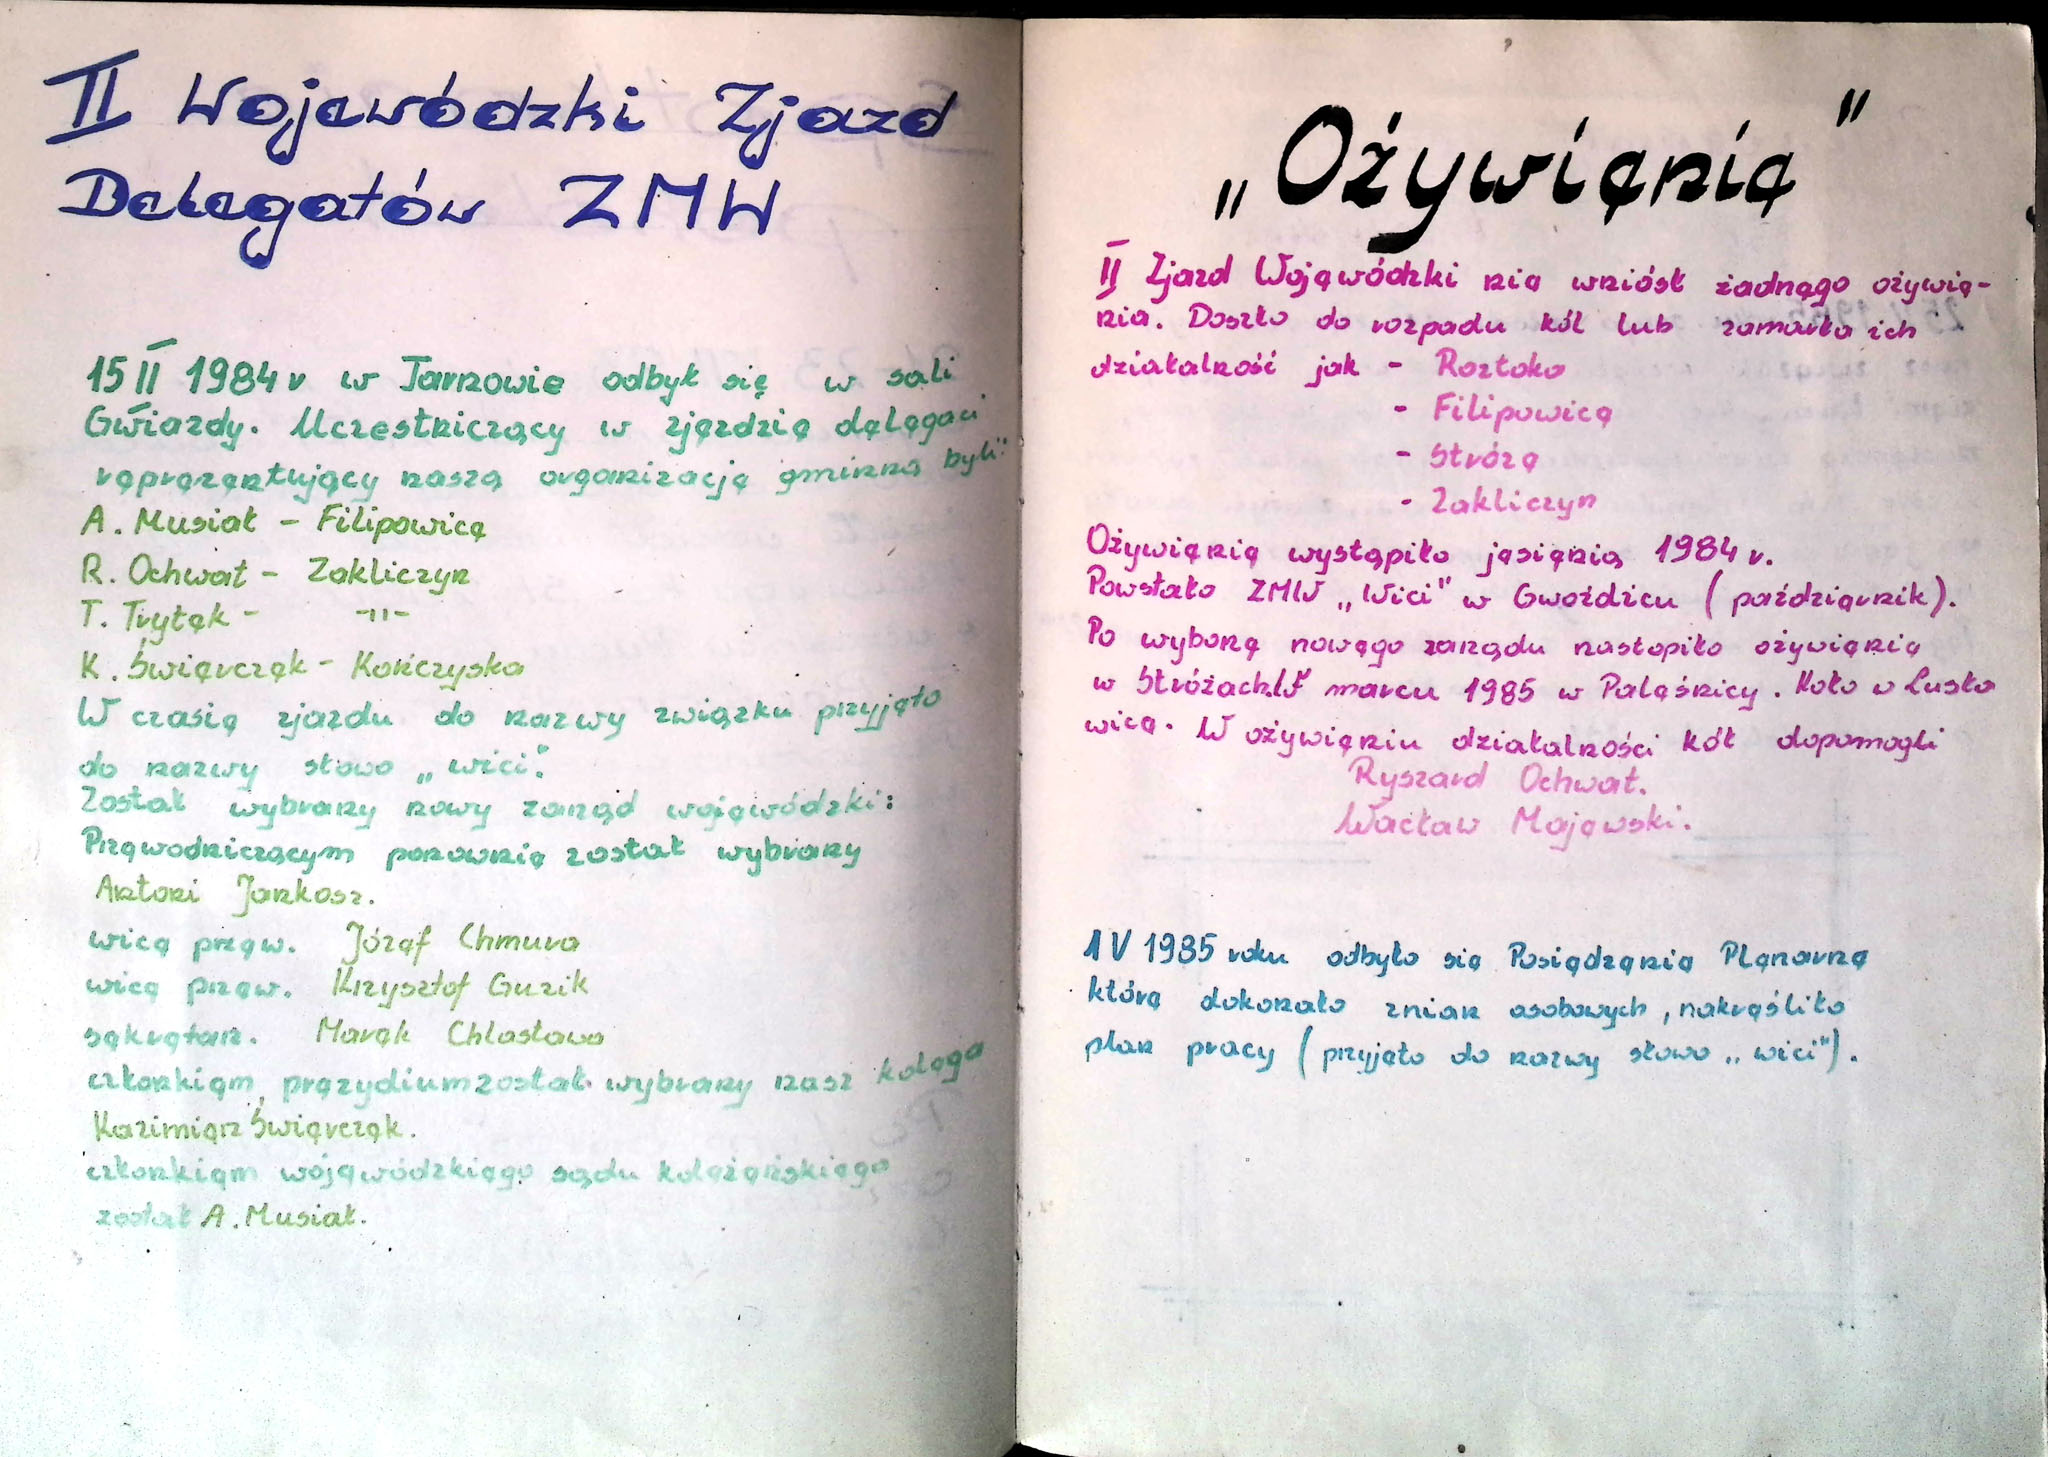 II Wojewódzki Zjazd
Delegatów ZMW
15 II 1984 r w Tarnowie odbył się w sali
Gwiazdy. Uczestniczący w zjeździe delegaci
reprezentujący naszą organizację gminną byli:
A. Musiał - Filipowice
R. Ochwat - Zakliczyn
T. Trytek - -11-
K. Świerczek - Kończyska
W czasie zjazdu do nazwy związku przyjęto
do nazwy słowo „wici".
Został wybrany nowy zarząd wojewódzki:
Przewodniczącym ponownie został wybrany
Antoni Jarkosz.
wice przew. Józef Chmura
wice przew. Krzysztof Guzik
sekretarz. Marek Chlastawa
członkiem prezydium został wybrany nasz kolega
Kazimierz Świerczek.
członkiem wojewódzkiego sądu koleżeńskiego
został A. Musiał.
„Ożywienie"
II Zjazd Wojewódzki nie wniósł żadnego ożywie-
nia. Doszło do rozpadu kół lub zamarła ich
działalność jak - Roztoka
- Filipowice
- Stróże
- Zakliczyn
Ożywienie wystąpiło jesienią 1984 r.
Powstało ZMW „Wici" w Gwoźdźcu (październik).
Po wyborze nowego zarządu nastąpiło ożywienie
w Stróżach. W marcu 1985 w Paleśnicy. Koło w Lusła
wice. W ożywieniu działalności kół dopomogli
Ryszard Ochwat.
Wacław Majewski.
1 V 1985 roku odbyło się Posiedzenie Plenarne
które dokonało zmian osobowych, nakreśliło
plan pracy (przyjęto do nazwy słowo „wici").